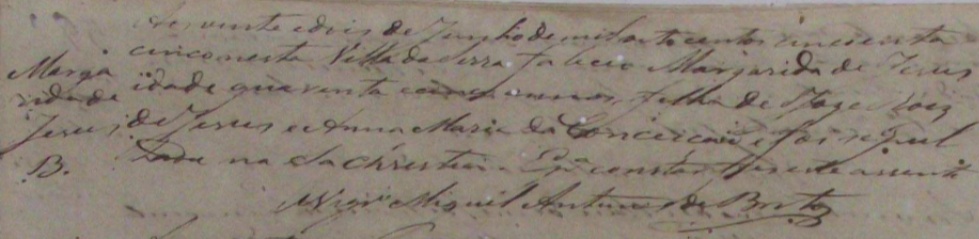 Aos vinte e dois de Junho de mil oito centos cincoenta e
cinco nesta Villa da Serra faleceo Margarida de Jesus
Marga
rida de
Jesus
B.
idade quarenta annos, filha de Roiz
de Jesus e Anna Maria da Conceicaõ e foi sepul
tada na Sachristia. E p.ª constar fis este assento
Vigr.º Miguel Antunes de Brito